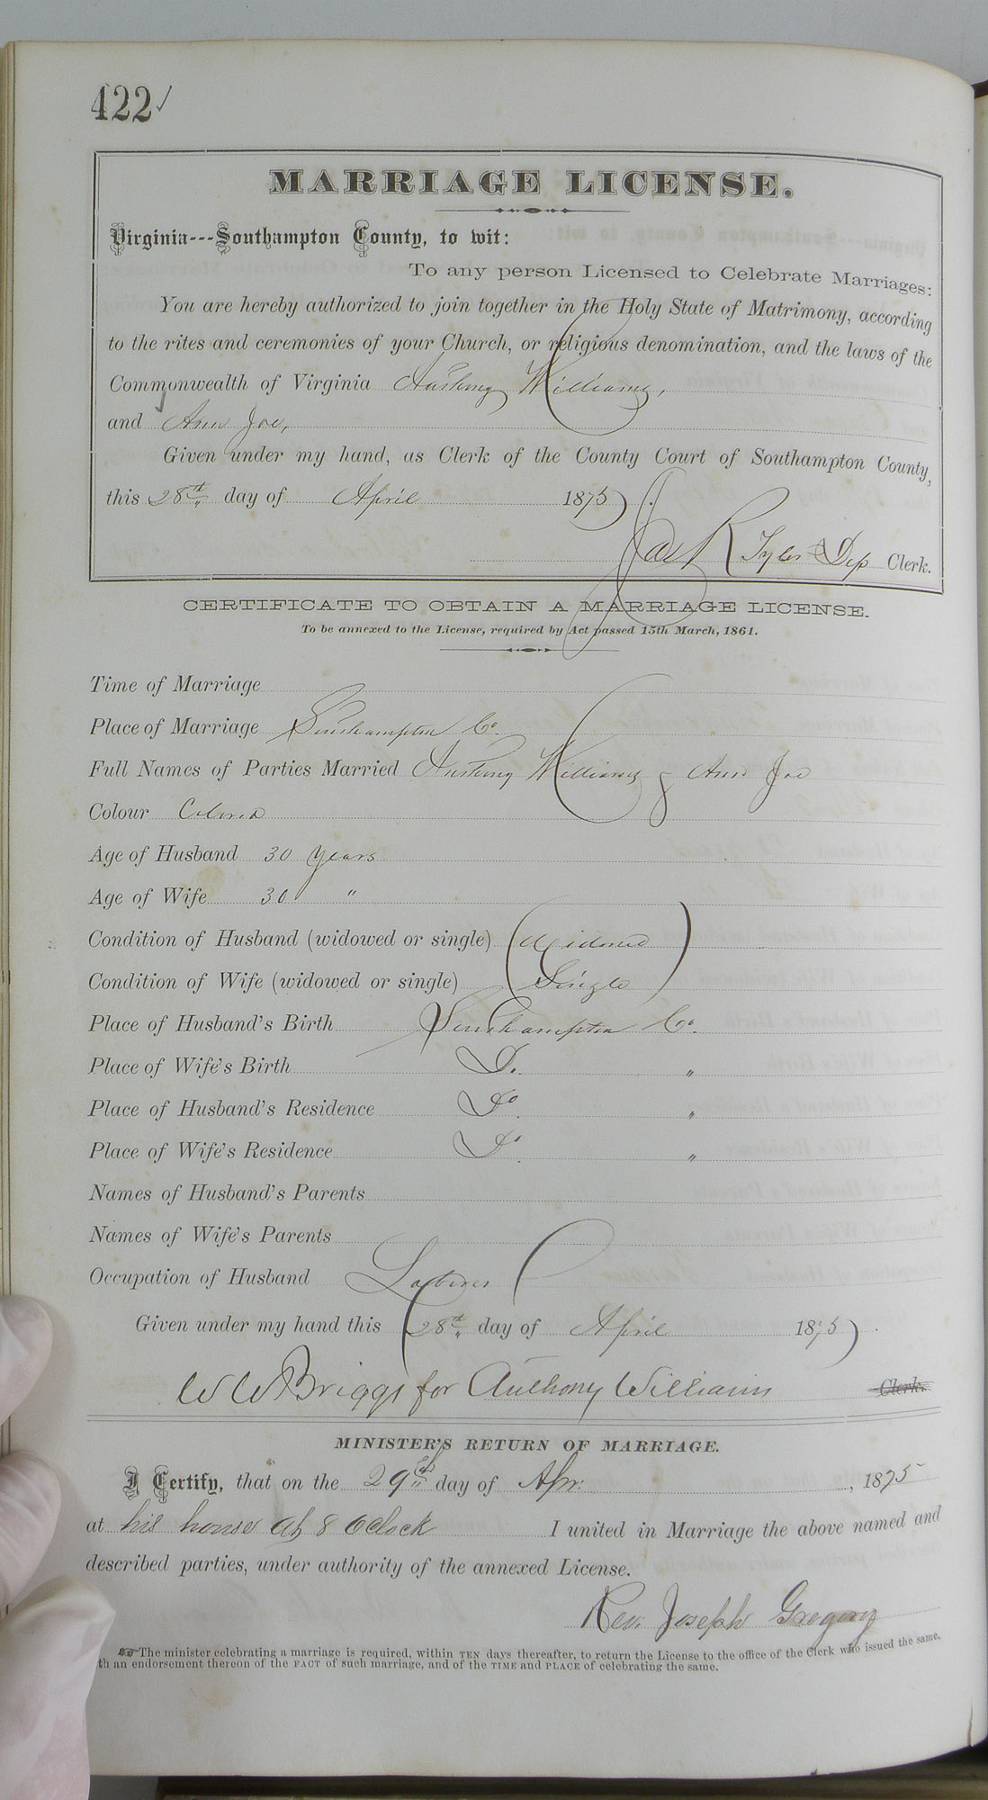 422
MARRIAGE LICENSE.
Virginia---Southampton County, to wit:
To any person Licensed to Celebrate Marriages:
You are hereby authorized to join together in the Holy State of Matrimony, according
to the rites and ceremonies of your Church, or religious denomination, and the laws of the
Commonwealth of Virginia Anthony Williams,
and Ann Joe,
Given under my hand, as Clerk of the County Court of Southampton County,
this 28th day of April 1875
R Tyler Dep Clerk.
CERTIFICATE TO OBTAIN A MARRIAGE LICENSE.
To be annexed to the License, required by Act passed 15th March, 1861.
Time of Marriage
Place of Marriage Southampton Co.
Full Names of Parties Married Anthony Williams & Ann Joe
Colour Colored
Age of Husband 30 years
Age of Wife 30 "
Condition of Husband (widowed or single) Widowed
Condition of Wife (widowed or single) Single
Place of Husband's Birth Southampton Co.
Place of Wife's Birth Do. "
Place of Husband's Residence Do "
Place of Wife's Residence Do "
Names of Husband's Parents
Names of Wife's Parents
Occupation of Husband Laborer
Given under my hand this 28th day of April 1875
W W Briggs for Anthony Williams Clerk.
MINISTER'S RETURN OF MARRIAGE.
I Certify, that on the 29th day of Apr. , 1875
at his house at 8 Oclock I united in Marriage the above named and
described parties, under authority of the annexed License.
Rev. Joseph Gregory
The minister celebrating a marriage is required, within TEN days thereafter, to return the License to the office of the Clerk who issued the same,
th an endorsement thereon of the FACT of such marriage, and of the TIME and PLACE of celebrating the same.